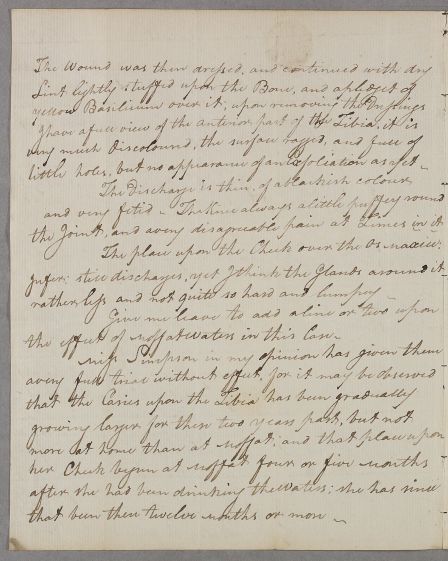 The Wound was then dressed, and continued with dry
Lint lightly stuffed upon the Bone, and a pledget of
yellow Basilicum over it; upon removing the Dressings
I have a full view of the anterior part of the Tibia, it is
very much Discoloured, the surface ragged, and full of
little holes, but no appearance of an exfoliation as yet –
The Discharge is thin, of a blackish colour
and very fetid – The Knee always a little puffey round
the Joint, and a very disagreable pain at times in it
The place upon the Cheek over the Os Maxil:
still discharges, yet I think the Glands around it
rather less and not quite so hard and lumpy –
Give me leave to add a line or two upon
the effect of Moffat waters in this Case –
Miss Simpson in my opinion has given them
a very full trial without effect, for it may be observed
that the Caries upon the Tibia has been gradually
growing larger for these two years past, but not
more at home than at Moffat; and that place upon
her Cheek begun at Moffat four or five Months
after she had been drinking the waters; she has since
that been there twelve Months or more –